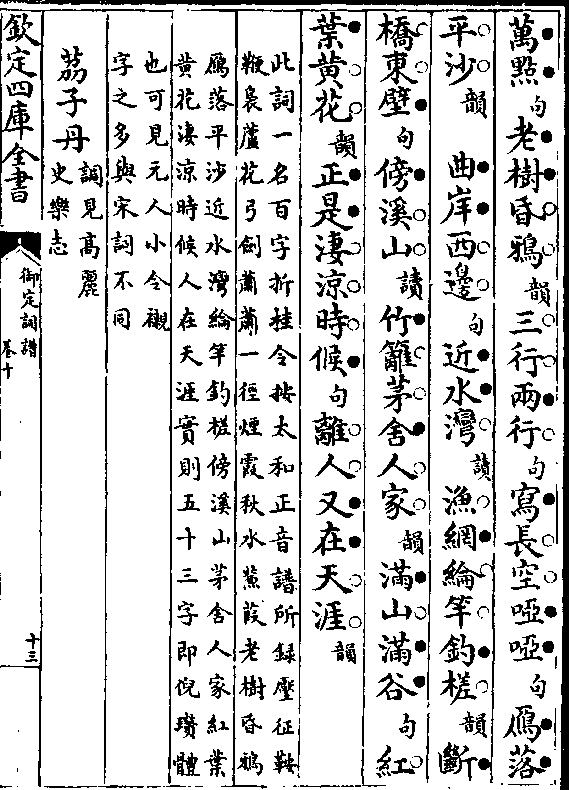 萬點句老樹昏鴉韻三行兩行句寫長空啞啞句鴈落
平沙韻 曲岸西邊句近水灣讀漁網綸竿釣槎韻斷
橋東壁句傍溪山讀竹籬茅舍人家韻滿山滿谷句紅
葉黄花韻正是淒涼時候句離人又在天涯韻
此詞一名百字折桂令按太和正音譜所録壓征鞍
鞭裊蘆花弓劍蕭蕭一徑煙霞秋水蒹葭老樹昏鴉
鴈落平沙近水灣綸竿釣槎傍溪山茅舍人家紅葉
黄花淒涼時候人在天涯實則五十三字即倪瓚體
也可見元人小令襯
字之多與宋詞不同
茘子丹 調見高麗
史樂志
欽定四庫全書
御定詞譜
卷十
十三